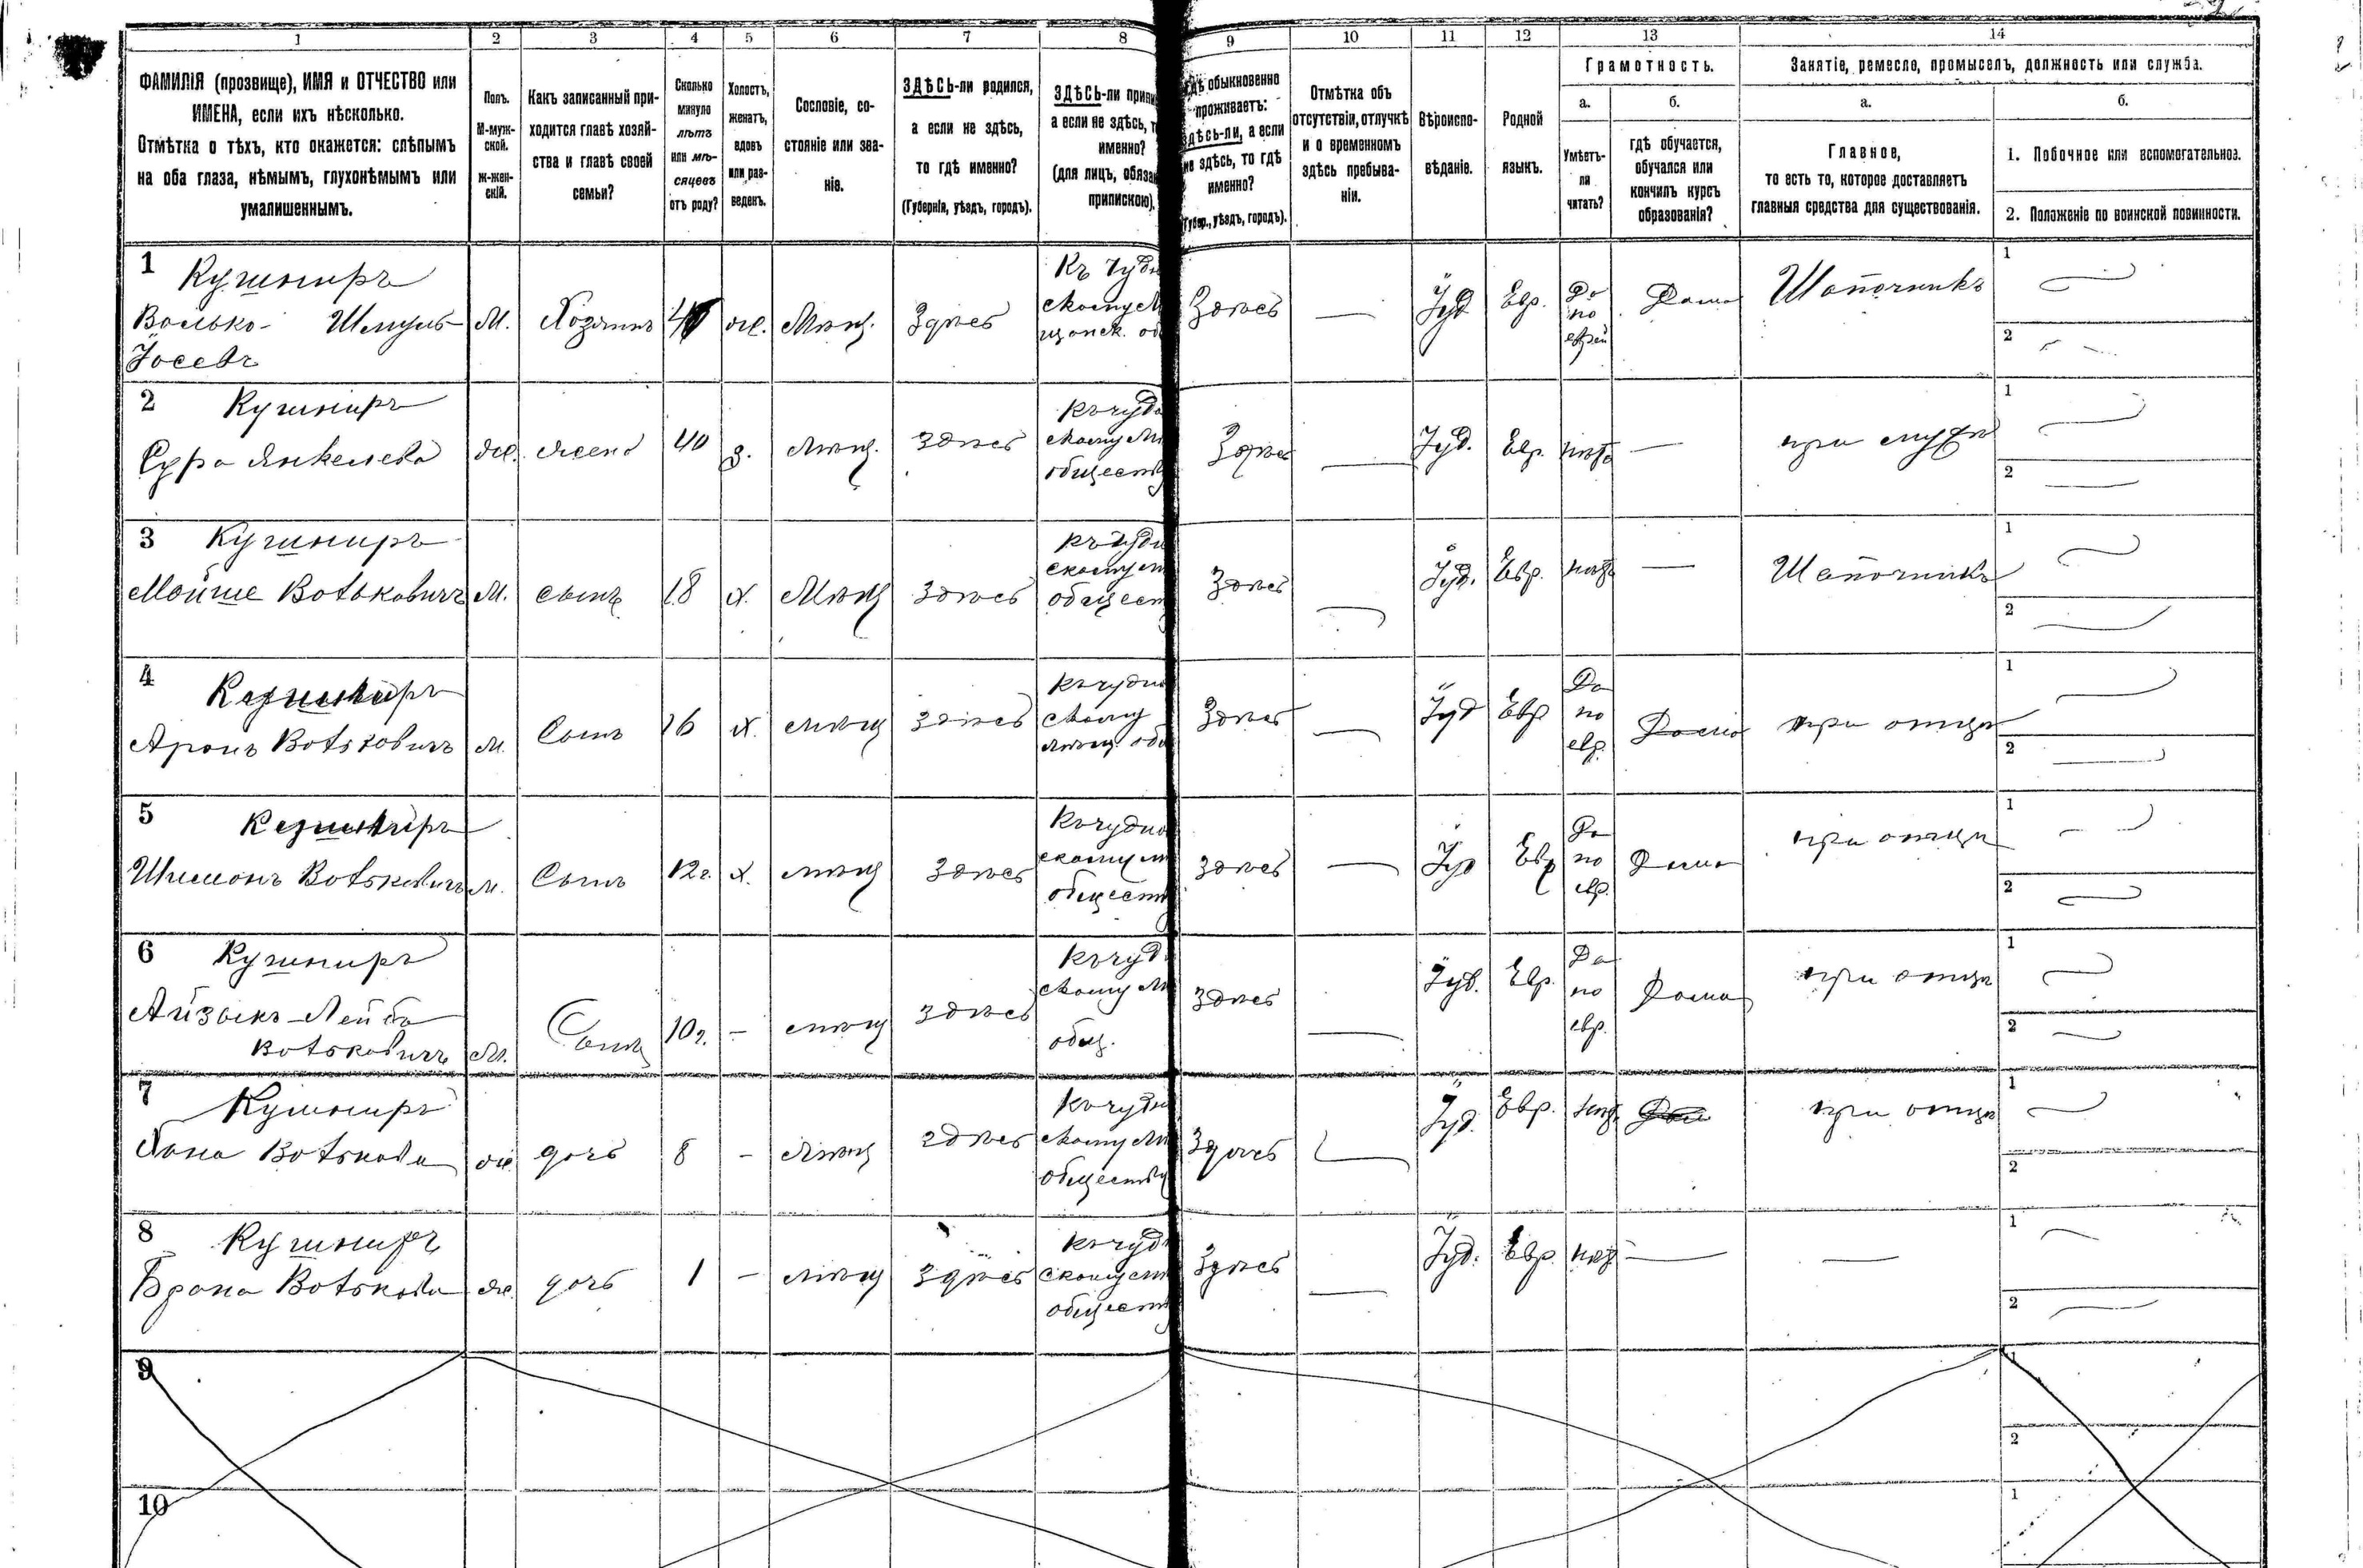 1 2 3 4 5 6 7 8 9 10 11 12 13 14
ФАМИЛІЯ (прозвище), ИМЯ и ОТЧЕСТВО или
ИМЕНА, если ихъ нѣсколько.
Отмѣтка о тѣхъ, кто окажется: слѣпымъ
на оба глаза, нѣмымъ, глухонѣмымъ или
умалишеннымъ.
Полъ.
М-муж-
ской.
Ж-жен-
скій.
Какъ записанный при-
ходится главѣ хозяй-
ства и главѣ своей
семьи?
Сколько
минуло
лѣтъ
или мѣ-
сяцевъ
отъ роду?
Холостъ,
женатъ,
вдовъ
или раз-
веденъ.
Сословіе, со-
стояніе или зва-
ніе.
ЗДѢСЬ-ли родился,
а если не здѣсь,
то гдѣ именно?
(Губернія, уѣздъ, городъ).
ЗДѢСЬ-ли припи
а если не здѣсь, т
именно?
(для лицъ, обяза
припискою).
гдѣ обыкновенно
проживаетъ:
здѣсь-ли, а если
не здѣсь, то гдѣ
именно?
Губер., уѣздъ, городъ).
Отмѣтка объ
отсутствіи, отлучкѣ
и о временномъ
здѣсь пребыва-
ніи.
Вѣроиспо-
вѣданіе.
Родной
языкъ.
Грамотность.
а.
Умѣетъ-
ли
читать?
б.
гдѣ обучается,
обучался или
кончилъ курсъ
образованія?
Занятіе, ремесло, промыселъ, должность или служба.
а.
Главное,
то есть то, которое доставляетъ
главныя средства для существованія.
б.
1. Побочное или вспомогательное.
2. Положеніе по воинской повинности.
1 Кушниръ
Волько- Шмуль-
Іосевъ
М. Хозяинъ же. Мѣщ. Здѣсь
Къ Чудн
скому М
щанск. об
Здѣсь — Іуд Евр.
Да
по
еврей
Дома Шапочникъ
1
2
2 Кушниръ
Сура Янкелева
же. жена 40 з. мѣщ. здѣсь
къ чудн
скому м
обществ
Здѣсь — Іуд. Евр. нѣтъ — при мужѣ
1
2
3 Кушниръ
Мойше Вольковичъ
М. сынъ 18 х. Мѣщ здѣсь
къ чудн
скому м
общест
Здѣсь — Іуд. Евр. нѣтъ — Шапочникъ
1
2
4 Кушниръ
Аронъ Вольковичъ
М. Сынъ 16 х. мѣщ здѣсь
къ чудн
скому
мѣщ. общ
Здѣсь — Іуд Евр
Да
по
евр.
Дома при отцѣ
1
2
5 Кушниръ
Шимонъ Вольковичъ
М. Сынъ 12 г. х. мѣщ здѣсь
къ чудно
скому м
обществ
здѣсь — Іуд Евр
Да
по
евр.
Дома при отцѣ
1
2
6 Кушниръ
Айзыкъ-Лейба
Вольковичъ
М. Сынъ 10 г. — мѣщ здѣсь
къ чуд
скому м
общ.
здѣсь — Іуд. Евр.
Да
по
евр.
Дома при отцѣ
1
2
7 Кушниръ
Хана Волькова
же. дочь 8 — мѣщ здѣсь
къ чудн
скому м
обществу
Здѣсь — Іуд. Евр. нѣтъ при отцѣ
1
2
8 Кушниръ
Брана Волькова
же. дочь 1 — мѣщ здѣсь
къ чудн
скому м
обществ
Здѣсь — Іуд. Евр нѣтъ — —
1
2
9
1
2
10
1